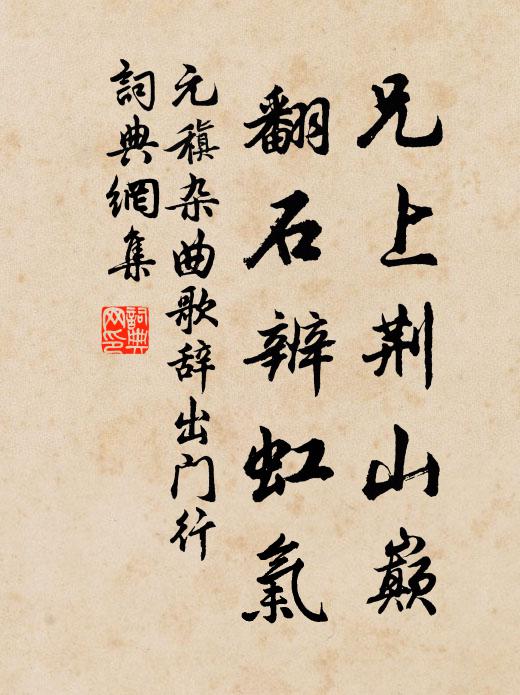 兄上荆山巅
翻石辨虹氣
元稹杂曲歌辞出门行
詞典網集
詞典网印